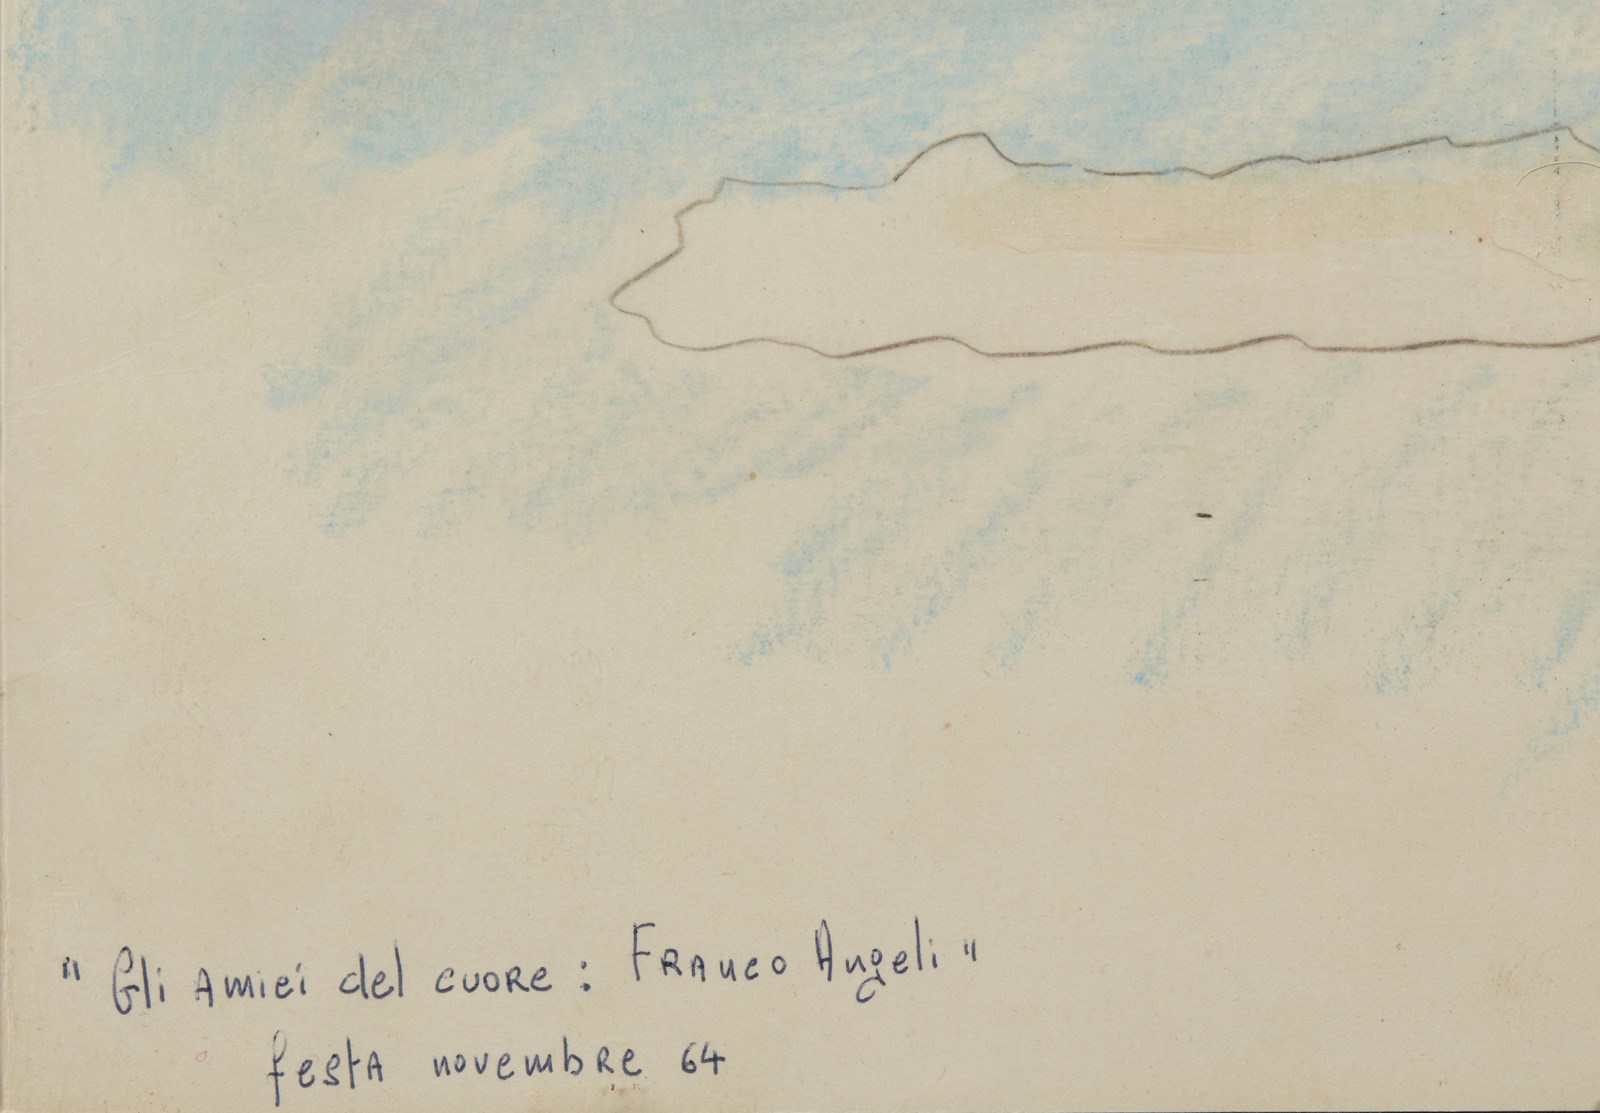 "Gli Amici del cuore: Franco Angeli"
festa novembre 64